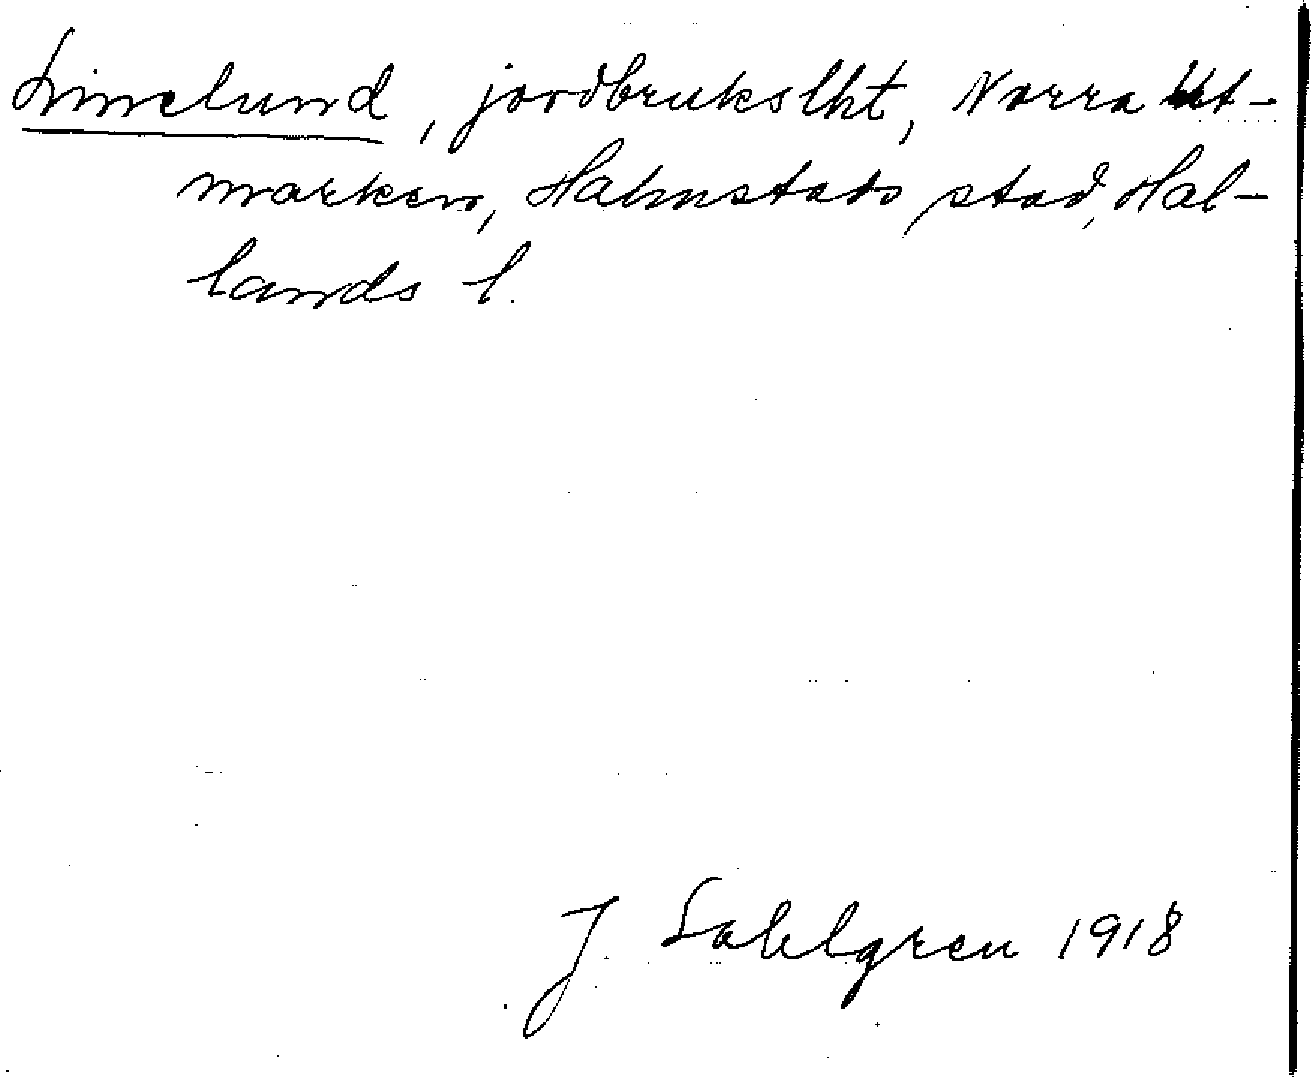 , jordbrukslht, Norra Ut-
marken, Halmstads stad, Hal-
lands l.
J. Sahlgren 1918